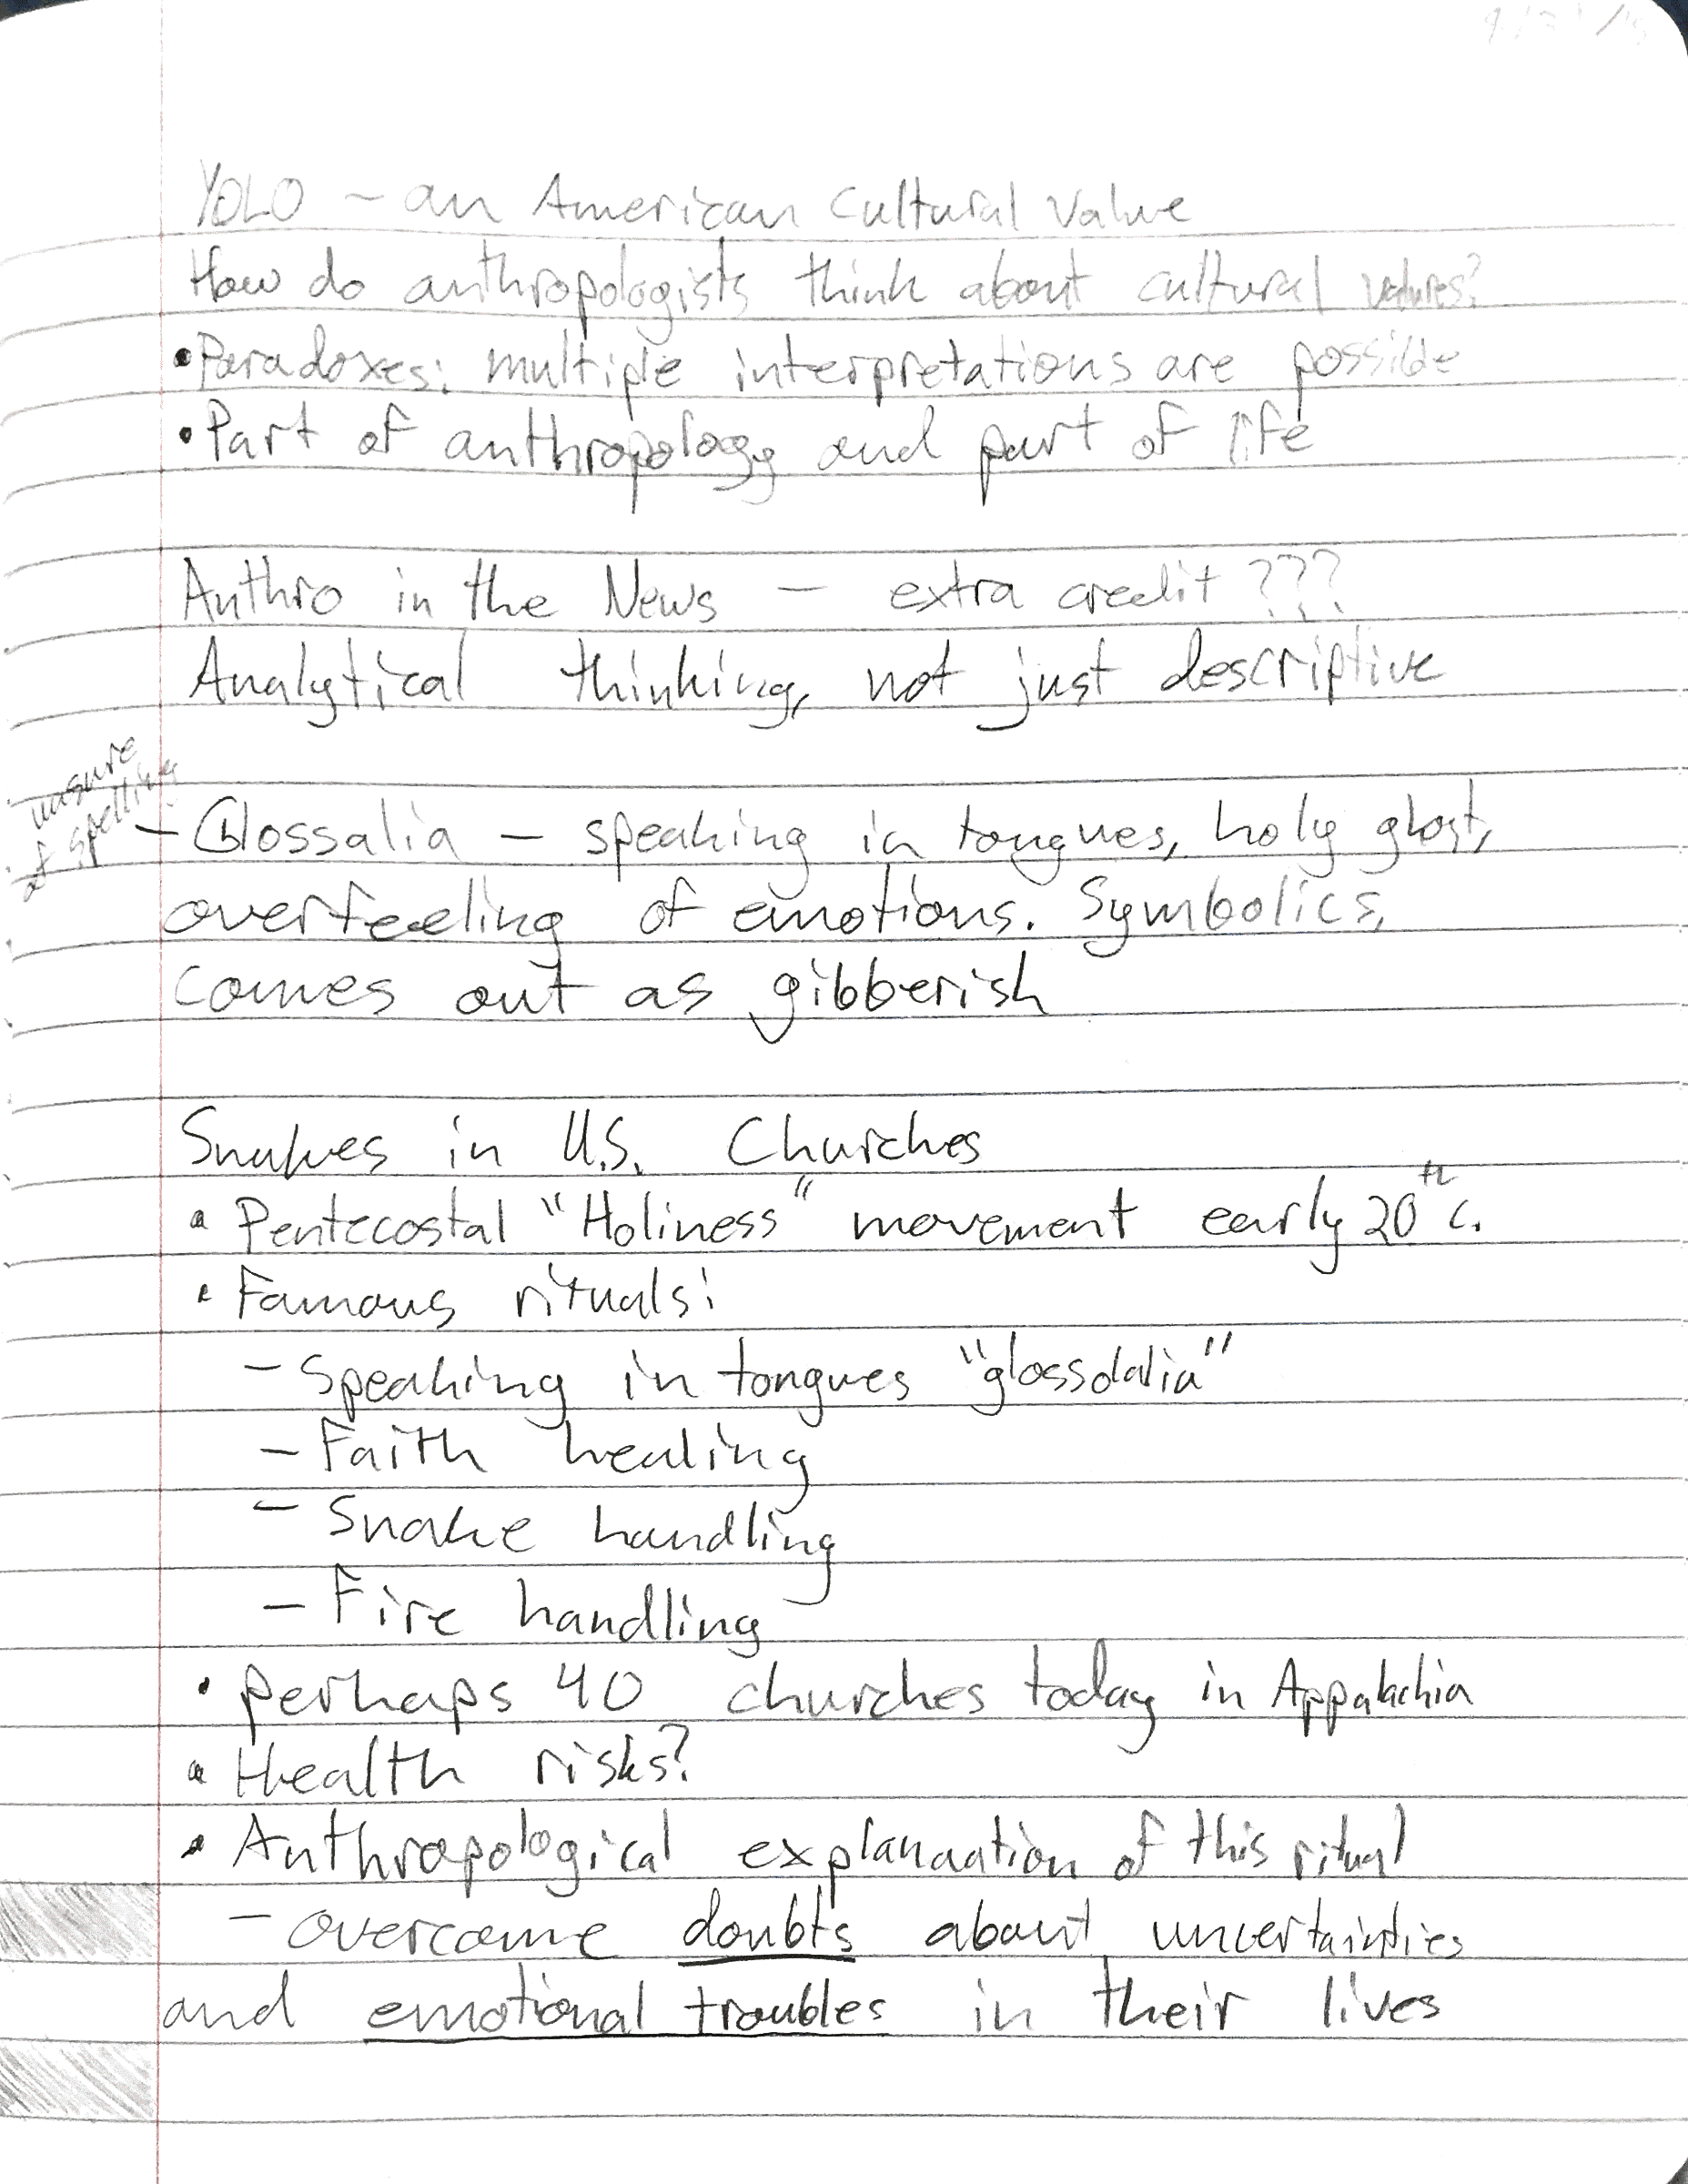 YOLO - an American cultural value
How do anthropologists think about cultural values?
• Paradoxes: multiple interpretations are possible
• Part of anthropology and part of life
Anthro in the News - extra credit ???
Analytical thinking, not just descriptive
unsure
of spelling
- Glossalia - speaking in tongues, holy ghost,
overfeeling of emotions. Symbolics,
comes out as gibberish
Snakes in U.S. Churches
• Pentecostal "Holiness" movement early 20th c.
• Famous rituals:
- Speaking in tongues "glossolalia"
- Faith healing
- Snake handling
- Fire handling
• perhaps 40 churches today in Appalachia
• Health risks?
• Anthropological explanation of this ritual
- overcome doubts about uncertainties
and emotional troubles in their lives